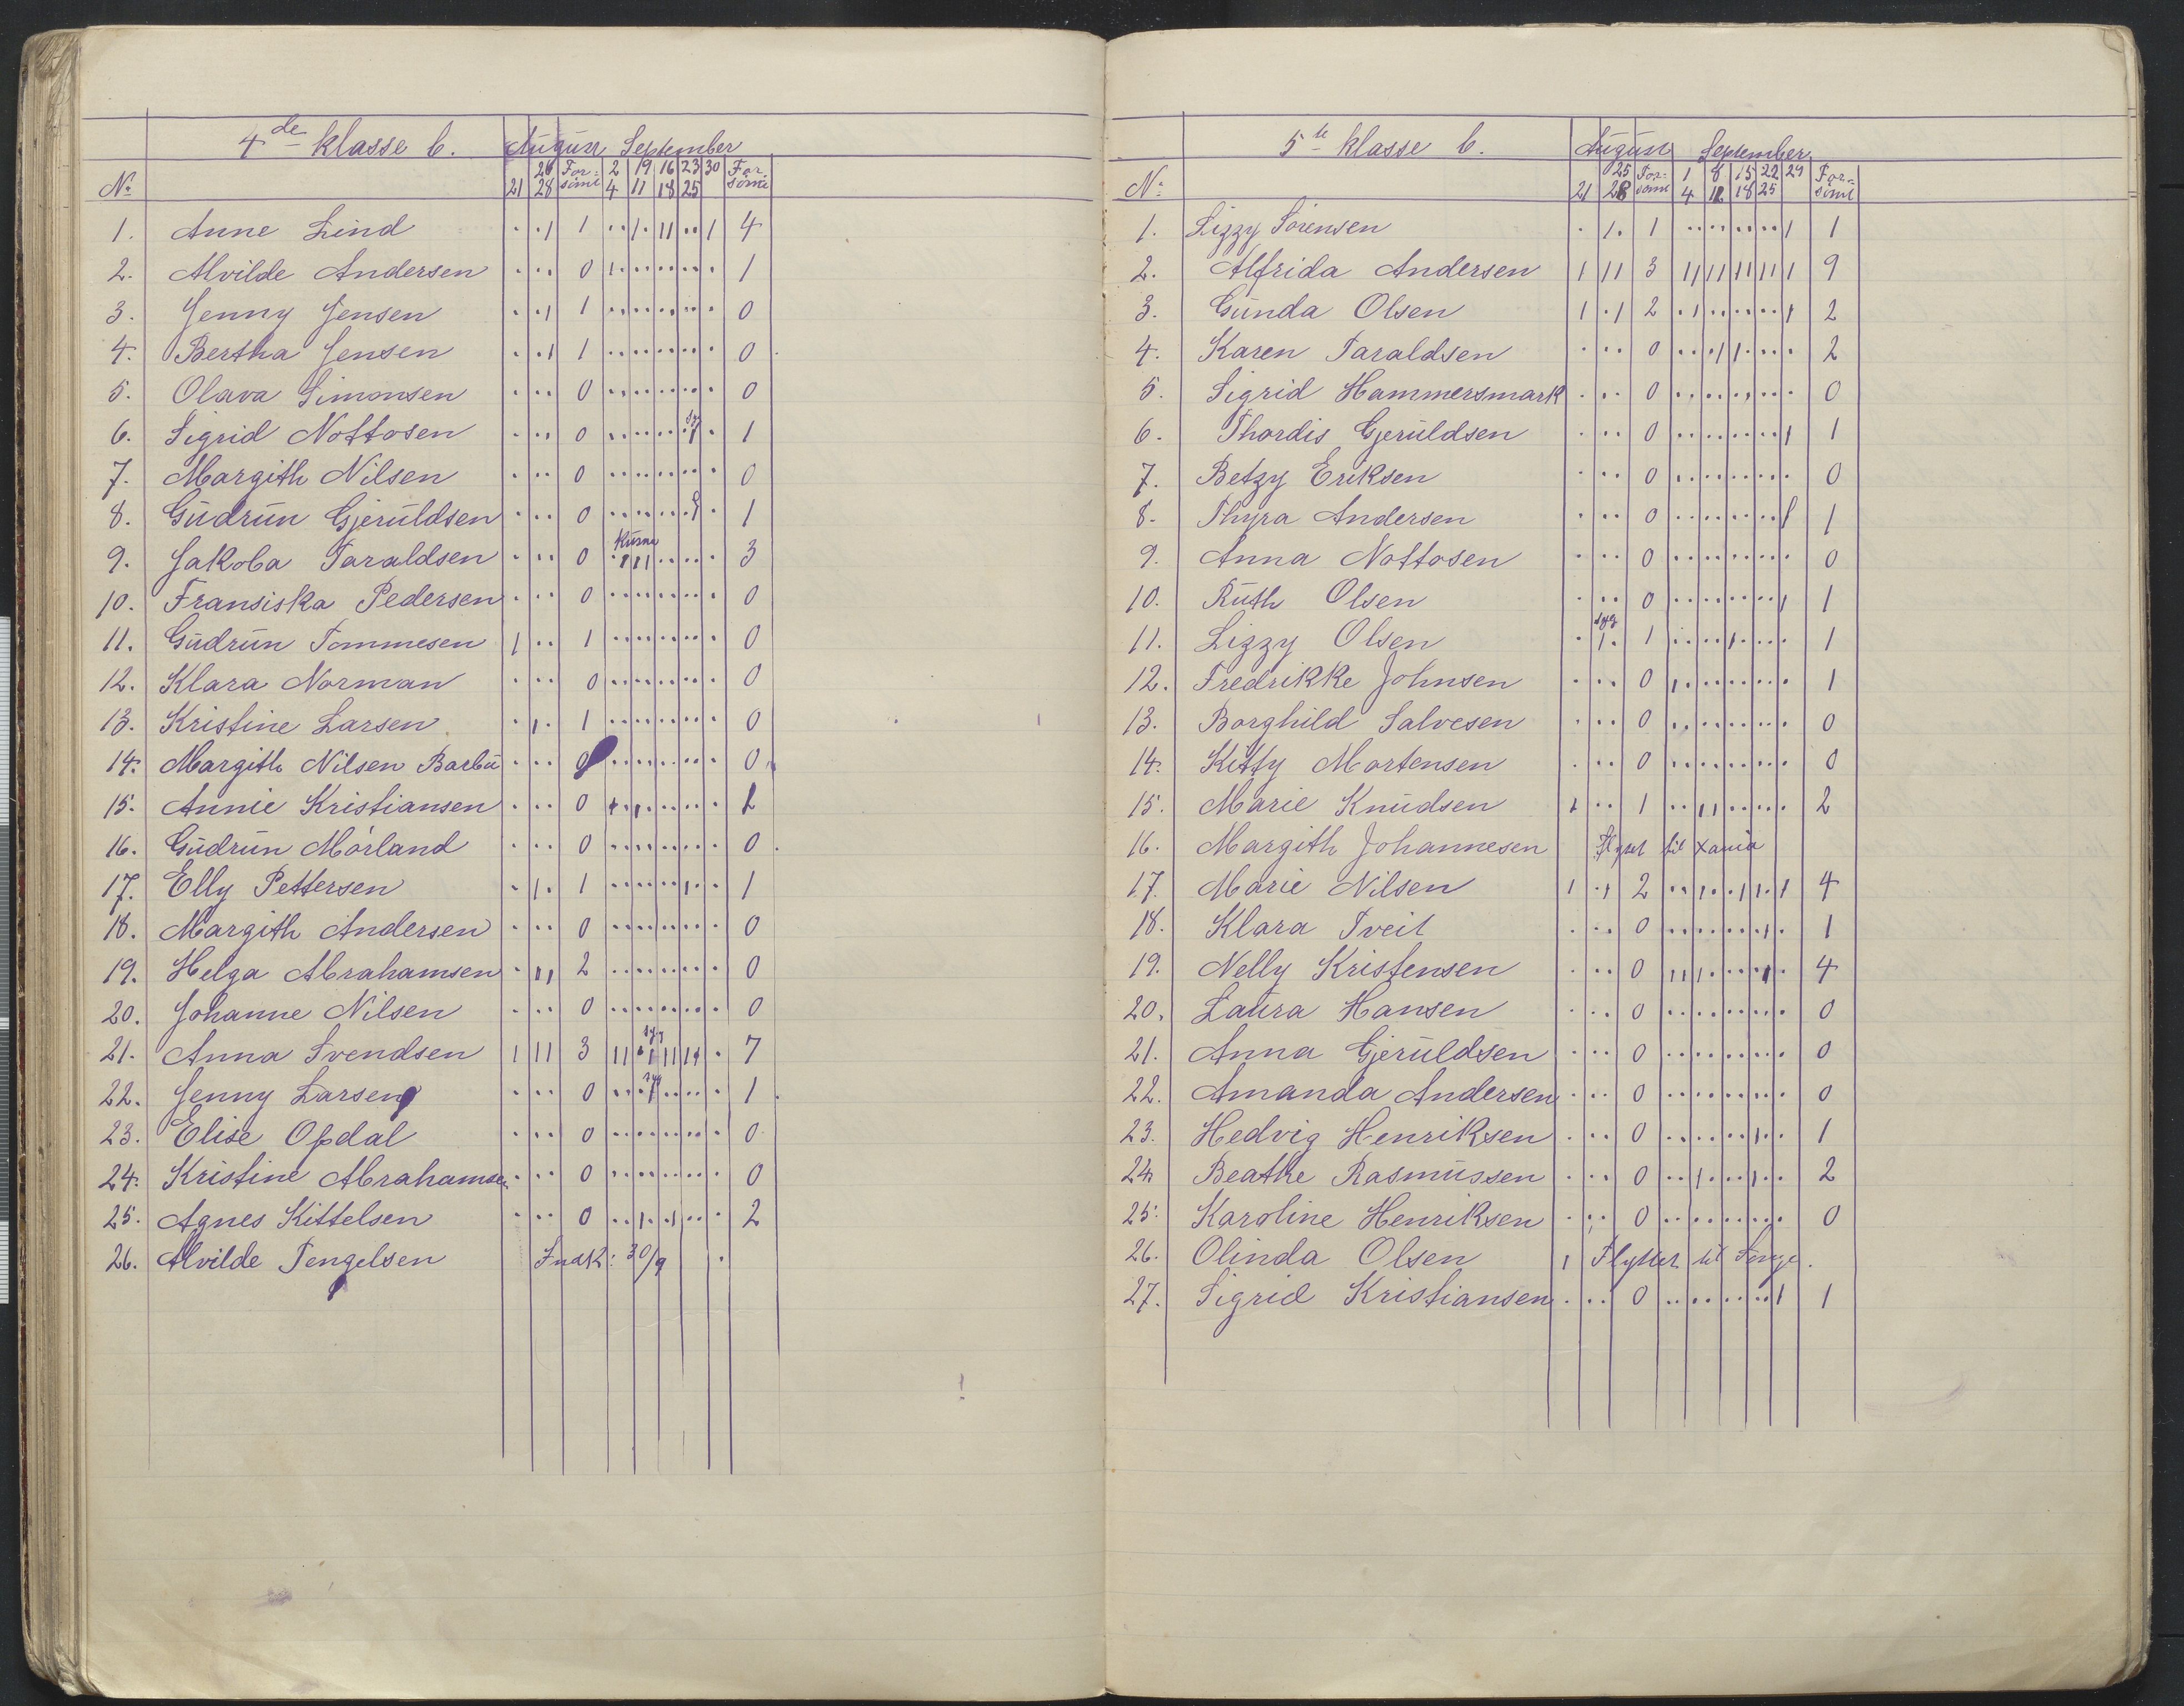 4de klasse b. August September
26 For- 2 19 16 23 30 For-
No 21 28 sømt 4 11 18 25 sømt
1. Anne Lind . . 1 1 . . 1 . 1 1 . . 1 4
2. Alvilde Andersen . . . 0 1 . . . . . . . . 1
3. Jenny Jensen . . 1 1 . . . . . . . . . 0
4. Bertha Jensen . . 1 1 . . . . . . . . . 0
5. Olava Simonsen . . . 0 . . . . . . . . . 0
6. Sigrid Nottosen . . . 0 . . . . . . . 1 . 1
7. Margith Nilsen . . . 0 . . . . . . . . . 0
8. Gudrun Gjeruldsen . . . 0 . . . . . . . 1 . 1
9. Jakoba Taraldsen . . . 0 . 1 1 1 . . . . . 3
10. Fransiska Pedersen . . . 0 . . . . . . . . . 0
11. Gudrun Tommesen 1 . . 1 . . . . . . . . . 0
12. Klara Norman . . . 0 . . . . . . . . . 0
13. Kristine Larsen . 1 . 1 . . . . . . . . . 0
14. Margith Nilsen Barbu . . . 0 . . . . . . . . . 0
15. Annie Kristiansen . . . 0 1 . 1 . . . . . . 2
16. Gudrun Mørland . . . 0 . . . . . . . . . 0
17. Elly Pettersen . 1 . 1 . . . . . . 1 . . 1
18. Margith Andersen . . . 0 . . . . . . . . . 0
19. Helga Abrahamsen . 1 1 2 . . . . . . . . . 0
20. Johanne Nilsen . . . 0 . . . . . . . . . 0
21. Anna Svendsen 1 1 1 3 1 1 . syg 1 1 1 1 1 . 7
22. Jenny Larsen . . . 0 . . . syg 1 . . . . . 1
23. Elise Opdal . . . 0 . . . . . . . . . 0
24. Kristine Abrahamsen . . . 0 . . . . . . . . . 0
25. Agnes Kittelsen . . . 0 . . 1 . . 1 . . . 2
26. Alvilde Tengelsen Indsk: 30/9 .
5te klasse b. August September
25 For- 1 8 15 22 29 For-
No 21 28 sømt 4 11 18 25 sømt
1. Lizzy Sørensen . 1 . 1 . . . . . . . . 1 1
2. Alfrida Andersen 1 1 1 3 1 1 1 1 1 1 1 1 1 9
3. Gunda Olsen 1 . 1 2 . 1 . . . . . . 1 2
4. Karen Taraldsen . . . 0 . . . 1 1 . . . . 2
5. Sigrid Hammersmark . . . 0 . . . . . . . . . 0
6. Thordis Gjeruldsen . . . 0 . . . . . . . . 1 1
7. Betzy Eriksen . . . 0 . . . . . . . . . 0
8. Thyra Andersen . . . 0 . . . . . . . . 1 1
9. Anna Nottosen . . . 0 . . . . . . . . . 0
10. Ruth Olsen . . . 0 . . . . . . . . 1 1
11. Lizzy Olsen . syg 1 . 1 . . . . 1 . . . . 1
12. Fredrikke Johnsen . . . 0 1 . . . . . . . . 1
13. Borghild Salvesen . . . 0 . . . . . . . . . 0
14. Kitty Mortensen . . . 0 . . . . . . . . . 0
15. Marie Knudsen 1 . . 1 . . 1 1 . . . . . 2
16. Margith Johannesen Flyttet til Xania
17. Marie Nilsen 1 . 1 2 . . 1 . . 1 1 . 1 4
18. Klara Tveit . . . 0 . . . . . . . 1 . 1
19. Nelly Kristensen . . . 0 1 1 1 . . . . 1 . 4
20. Laura Hansen . . . 0 . . . . . . . . . 0
21. Anna Gjeruldsen . . . 0 . . . . . . . . . 0
22. Amanda Andersen . . . 0 . . . . . . . . . 0
23. Hedvig Henriksen . . . 0 . . . . . . 1 . . 1
24. Beathe Rasmussen . . . 0 . . 1 . . . 1 . . 2
25. Karoline Henriksen . . . 0 . . . . . . . . . 0
26. Olinda Olsen 1 Flyttet til
27. Sigrid Kristiansen . . . 0 . . . . . . . . 1 1